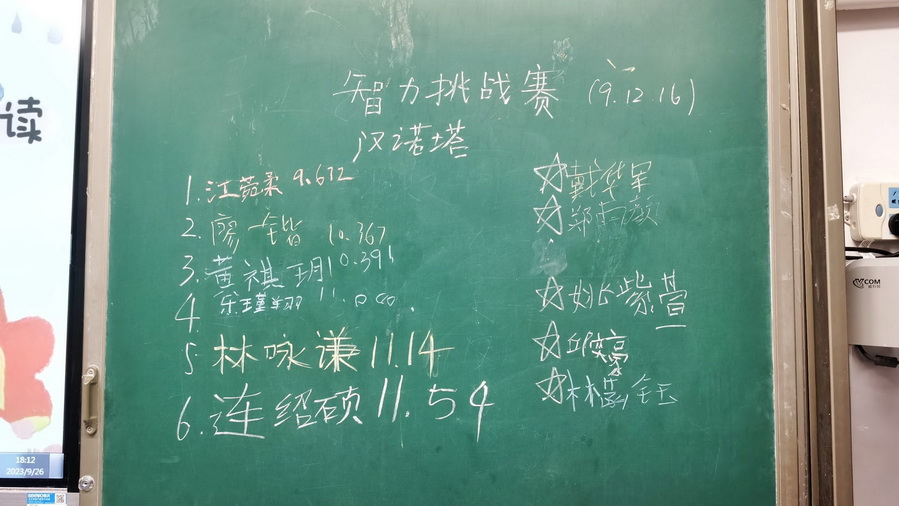 读
智力挑战赛 (9.12.16)
汉诺塔
1. 江茹柔 9.672
2. 廖一锴 10.367
3. 黄祺玥 10.391
4. 11.000.
5. 林咏谦 11.14
6. 连绍硕 11.54
☆戴华军
☆郑雨颜
☆姚紫萱
☆邱
☆林 钰
18:12
2023/9/26
COM